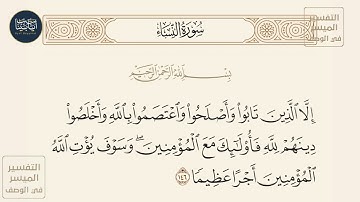 سُورَةُ النِّسَاءِ
التفسير
الميسر
في الوصف
بِسْمِ اللَّهِ الرَّحْمَٰنِ الرَّحِيمِ
إِلَّا الَّذِينَ تَابُوا۟ وَأَصْلَحُوا۟ وَاعْتَصَمُوا۟ بِاللَّهِ وَأَخْلَصُوا۟
دِينَهُمْ لِلَّهِ فَأُو۟لَٰٓئِكَ مَعَ الْمُؤْمِنِينَ ۖ وَسَوْفَ يُؤْتِ اللَّهُ
الْمُؤْمِنِينَ أَجْرًا عَظِيمًا ١٤٦
التفسير
الميسر
في الوصف